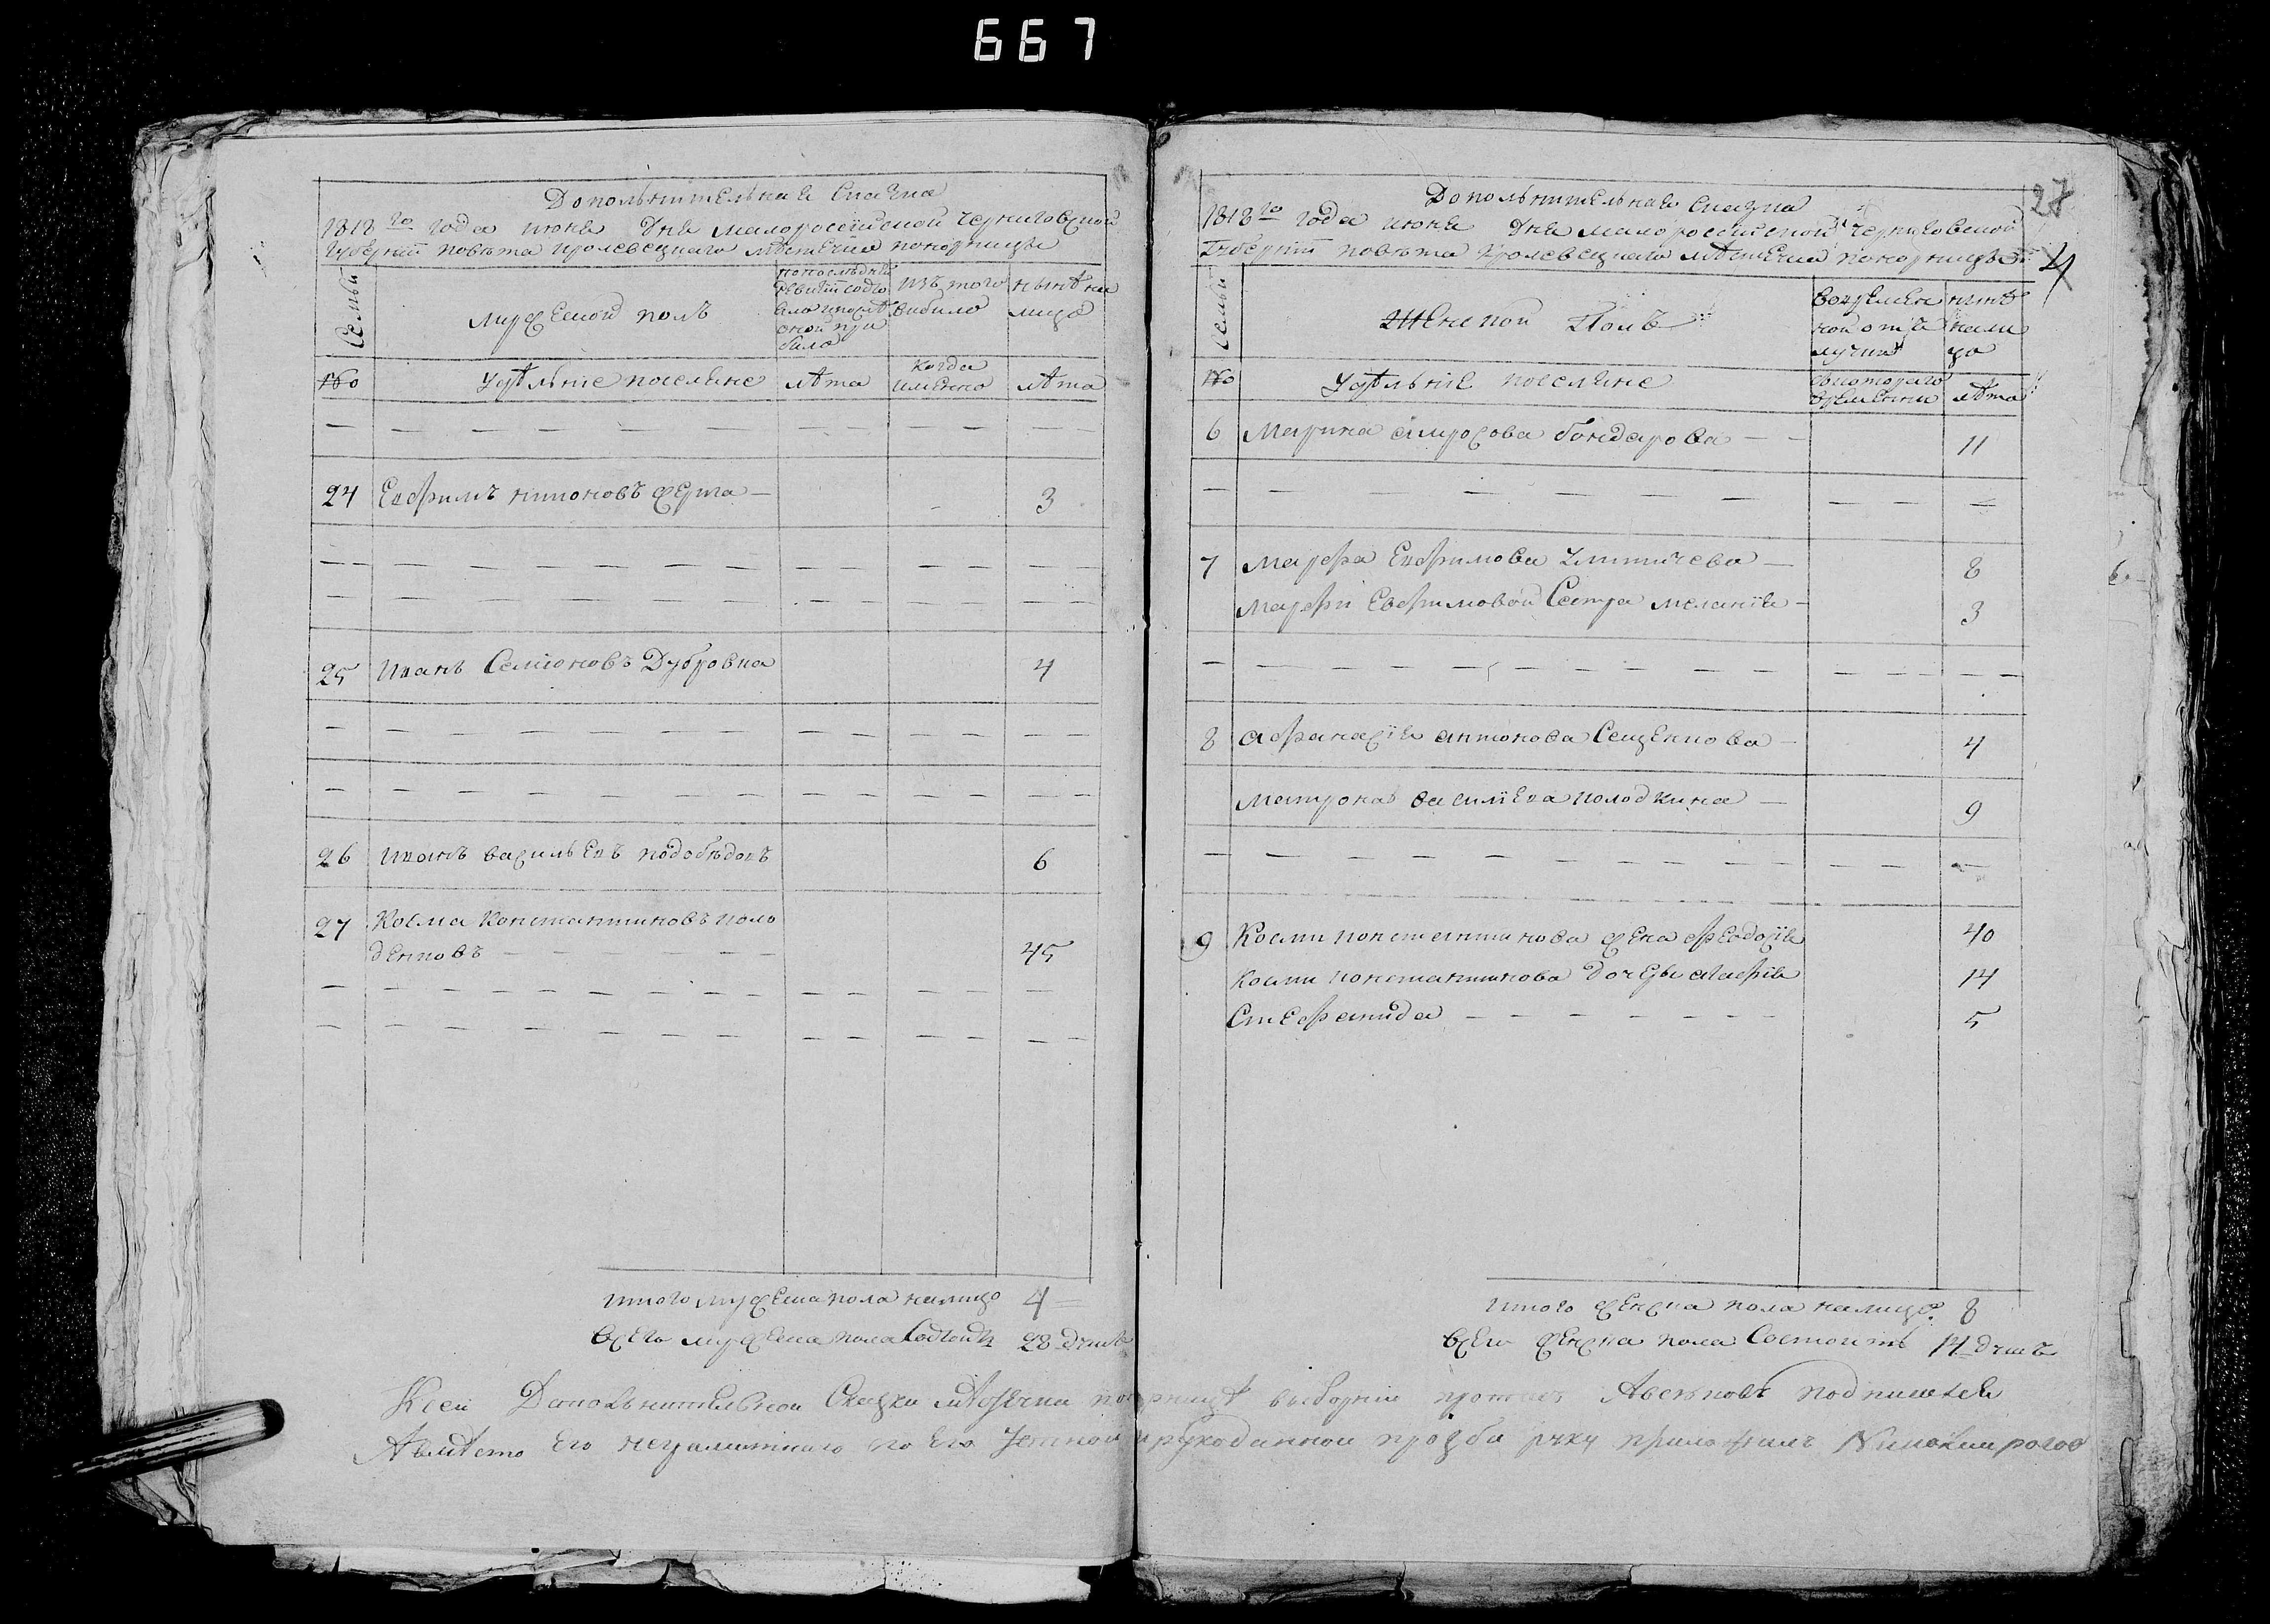 667
Дополънителъная Сказка
1818го года июня дня малороссийской черниговской
Губернии повѣта кролевецкаго мѣстечка понорницы
Семьи
мужеской полъ
попослѣдней ревизии состо
изъ того выбыло
нынѣ на лицо
№
удѣльніе поселяне
лѣта
когда имянно
лѣта
24 Евфимъ никоновъ ферта 3
25 Иванъ Семіоновъ Дубровка 4
26 Иванъ василъевъ подобѣдовъ 6
27 Косма Константиновъ коло
денковъ 45
итого мужеска пола налицо 4
всего мужеска пола Состоитъ 28 душъ
Дополънителъная Сказка
1818го года июня дня малороссийской черниговской
Губернии повѣта кролевецкаго мѣстечка понорницы
27
4
Семьи
Женской Полъ
во временной отлучкѣ
нынѣ налицо
№
удѣльніе поселяне
скотораго времени
лѣта
6 Марина амросова бондарова 11
7 марфа Евфимова 8
марфи Евфимовой Сестра меланія 3
8 афанасія антонова Сещенкова 4
матрона василіева колодкина 9
9 Косми константинова жена феодосія 40
Косми константинова дочеры агафія 14
Стефанида 5
итого женска пола налицо 8
всего женска пола Состоитъ 14 душъ
Ксей Дополънителной Скаски мѣстечка понорницѣ выборній Авсѣковъ подписался
Авмѣсто его неграмотнаго по его устной ирукоданной прозби руку приложилъ